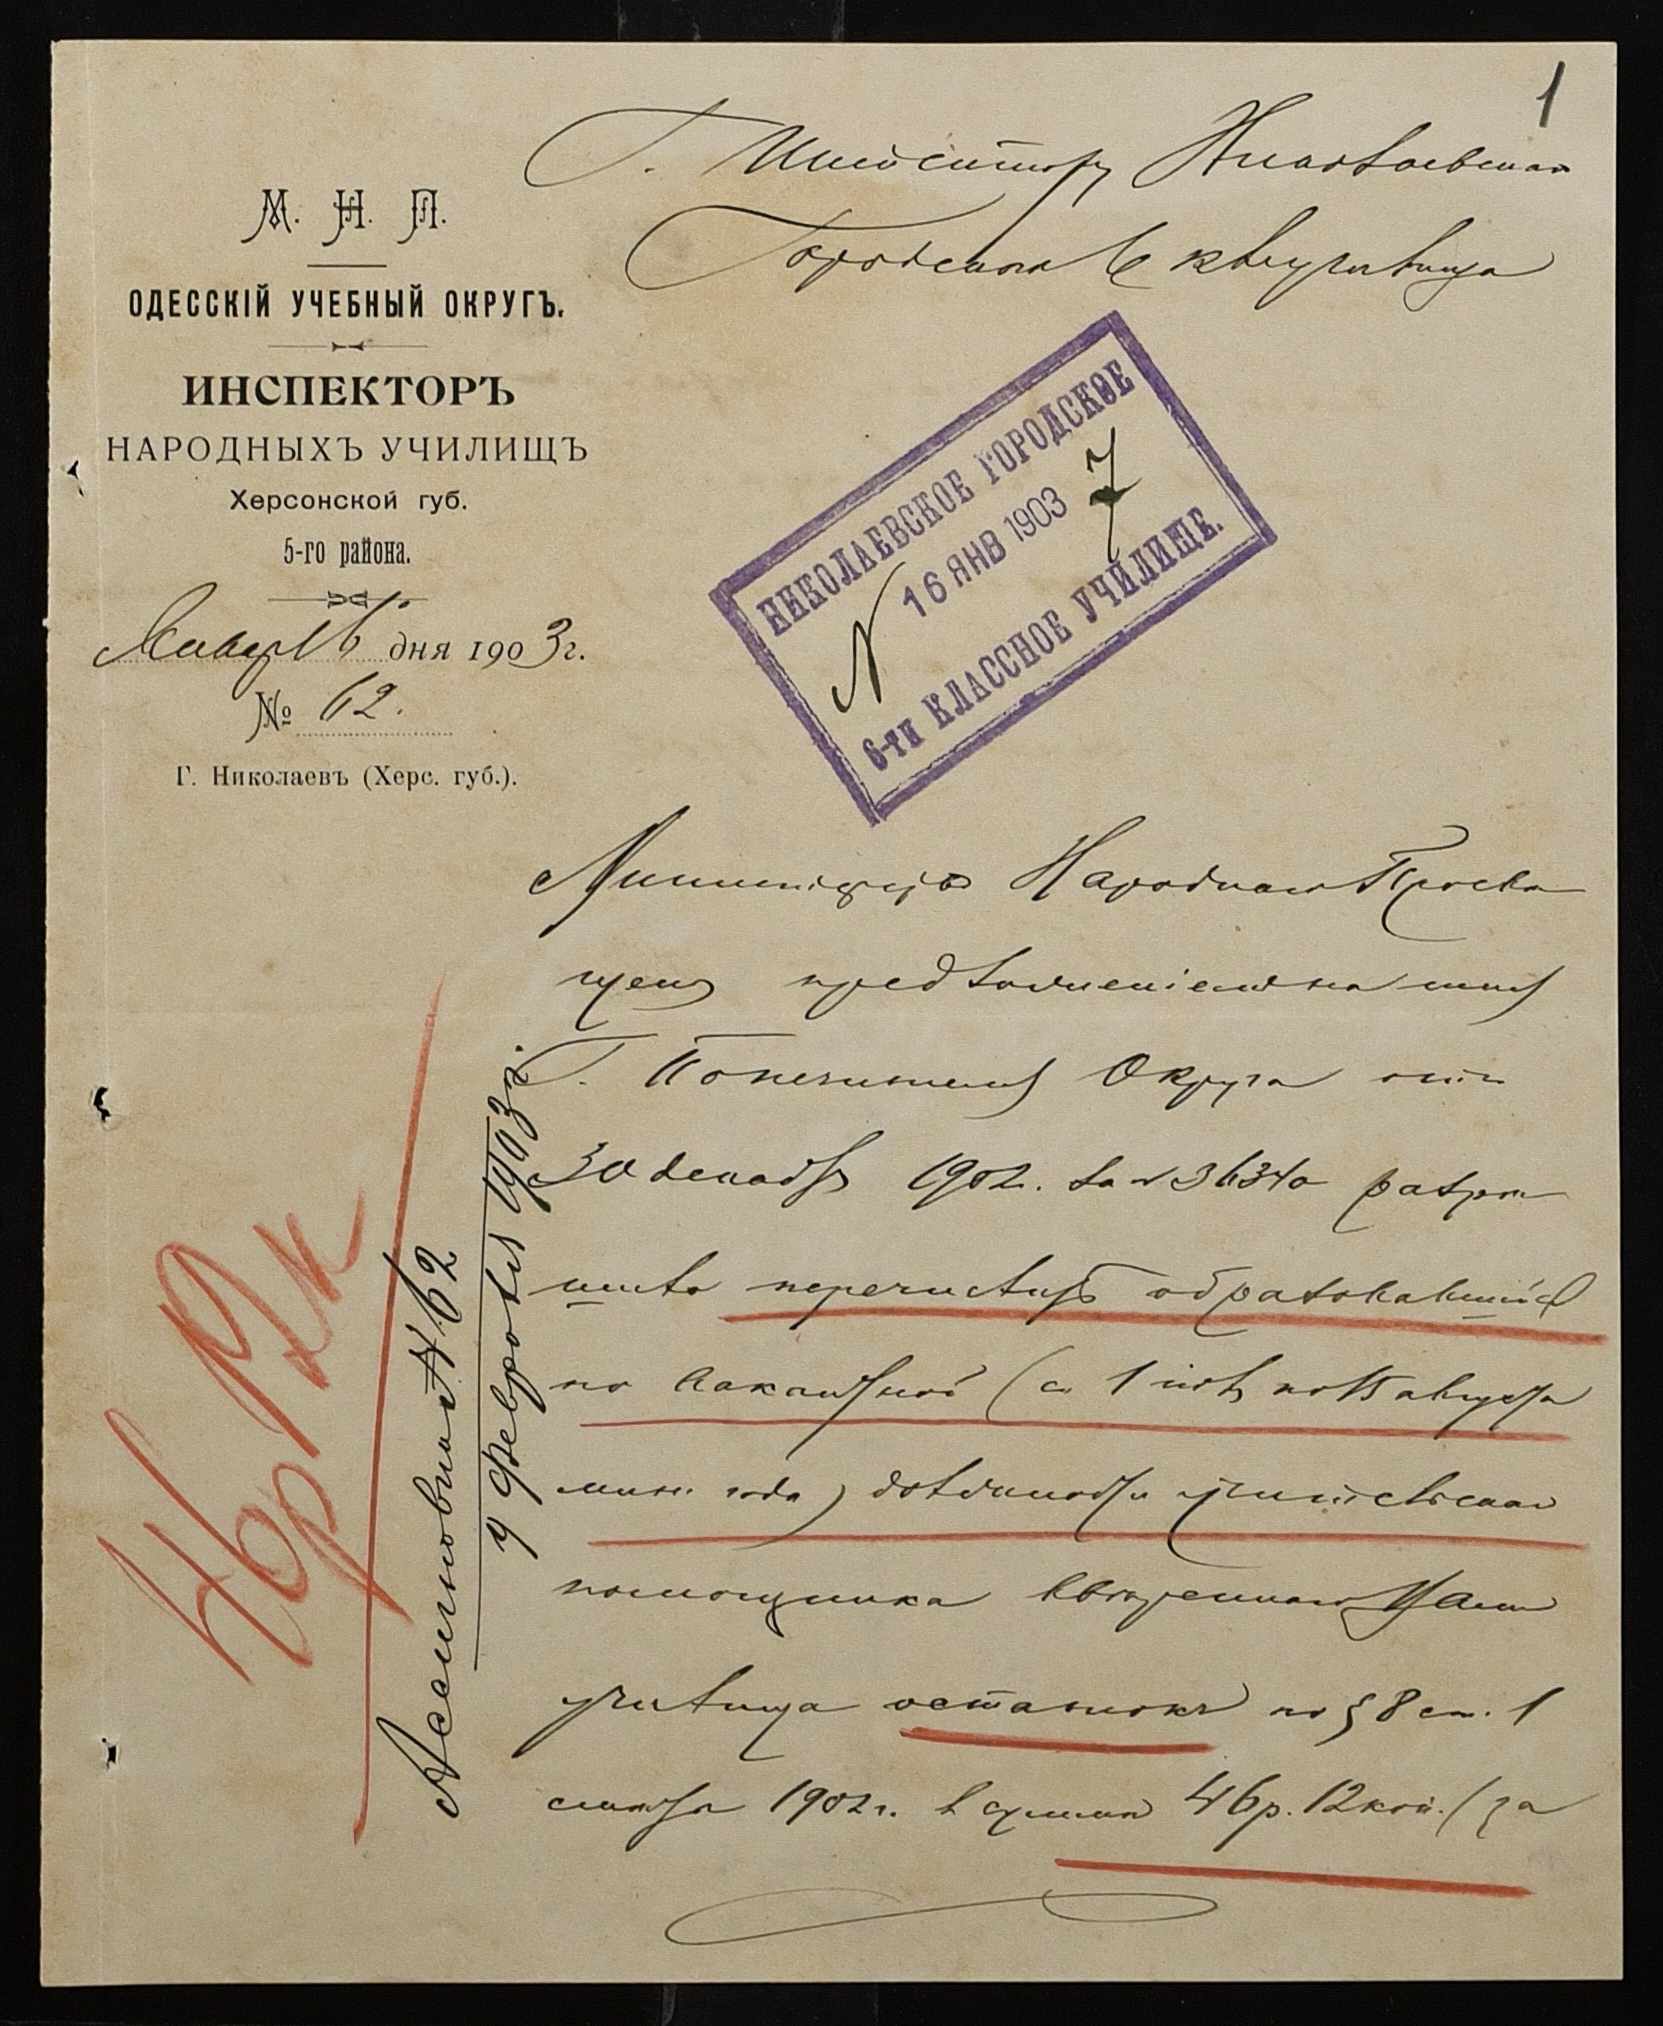 1
Г. Инспектору Николаевскаго
Городского 6 кл училища
М. Н. П.
ОДЕССКІЙ УЧЕБНЫЙ ОКРУГЪ.
ИНСПЕКТОРЪ
НАРОДНЫХЪ УЧИЛИЩЪ
Херсонской губ.
5-го района.
Января дня 1903 г.
№ 62.
Г. Николаевъ (Херс. губ.).
НИКОЛАЕВСКОЕ ГОРОДСКОЕ
16 ЯНВ 1903
N 7
6-ТИ КЛАССНОЕ УЧИЛИЩЕ.
Министерство Народнаго Просве
щенія предложеніемъ на имя
Г. Попечителя Округа отъ
30 декабря 1902. за № 36340 разре
шило перечислить образовавшійся
по вакантной (съ 1 по 15 августа
мин. года) должности учительскаго
помощника ввѣреннаго Вамъ
училища остатокъ по § 8 ст. 1
смѣты 1902 г. в суммѣ 46 р. 12 коп. (за
Ассигновка № 62
4 Февраля 1903 г.
46р 12к